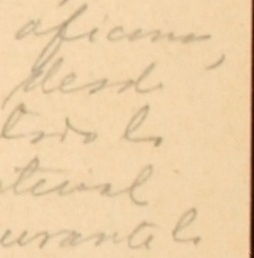 oficina,
desde
todo lo
aterial
urante lo